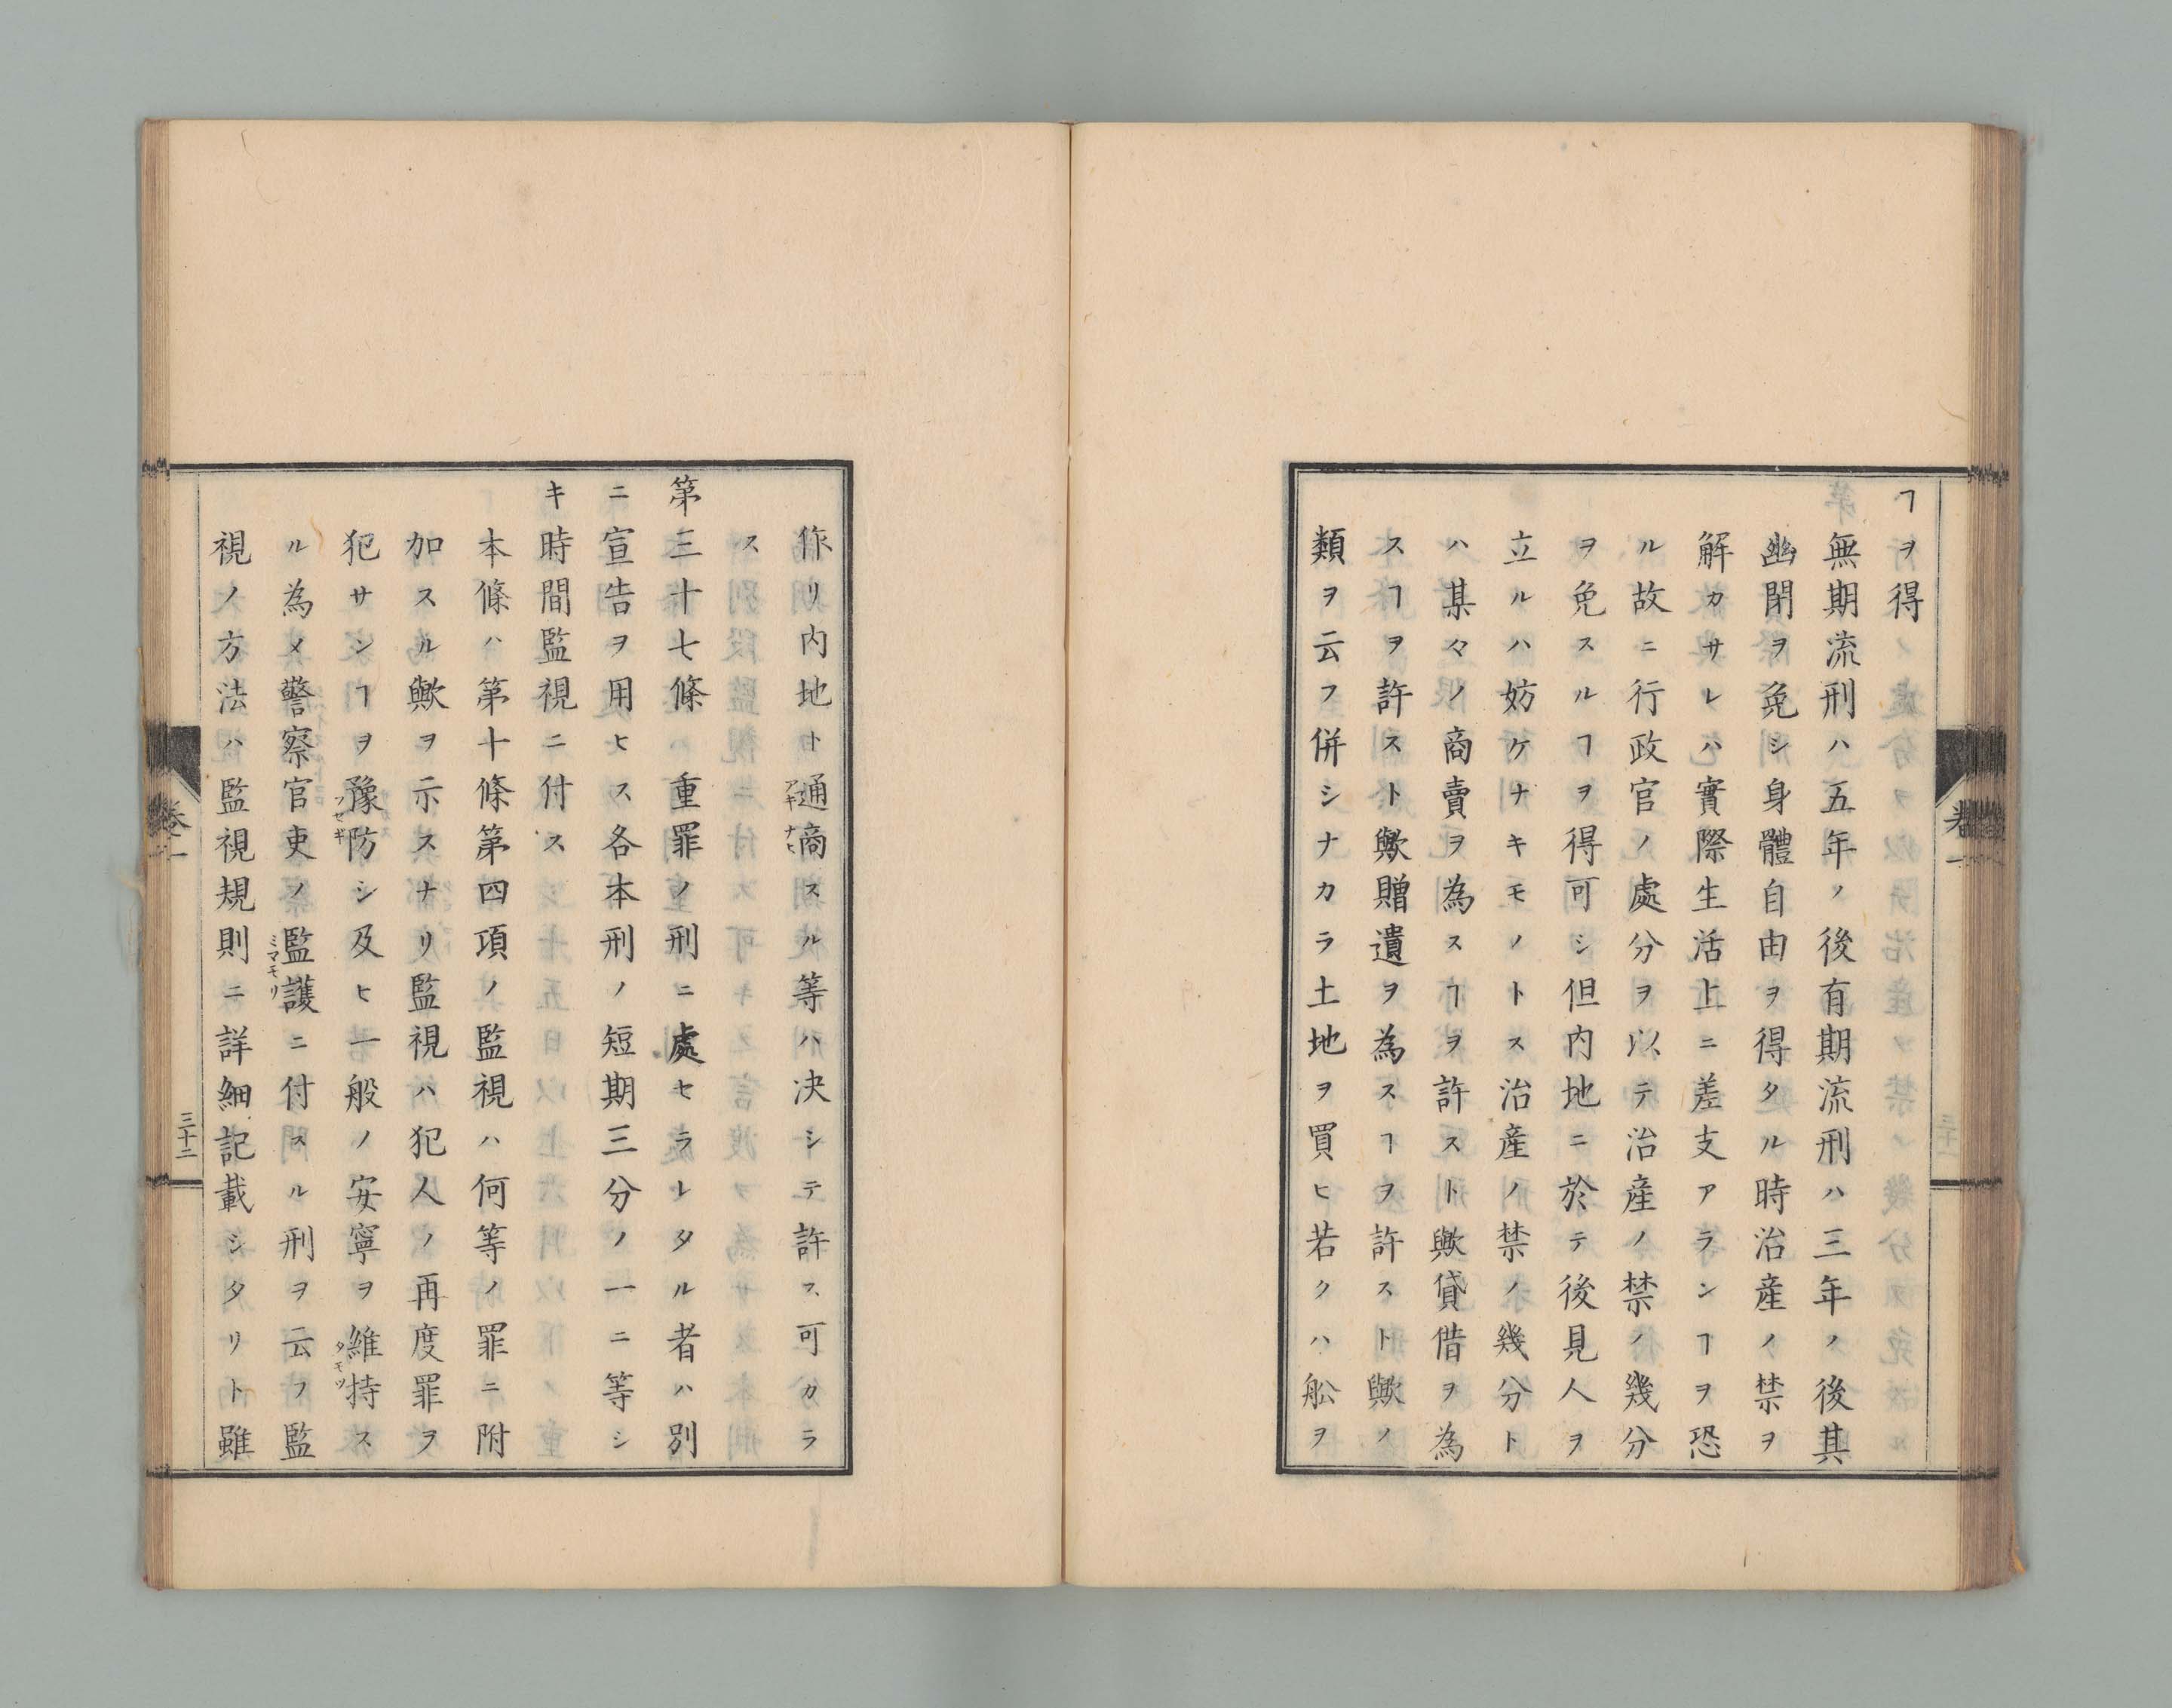 ヿヲ得
無期流刑ハ五年ノ後有期流刑ハ三年ノ後其
幽閉ヲ免シ身體自由ヲ得タル時治産ノ禁ヲ
解カサレハ實際生活上ニ差支アランヿヲ恐
ル故ニ行政官ノ處分ヲ以テ治産ノ禁ノ幾分
ヲ免スルヿヲ得可シ但內地ニ於テ後見人ヲ
立ルハ妨ケナキモノトス治産ノ禁ノ幾分ト
ハ某々ノ商賣ヲ為スヿヲ許スト歟貸借ヲ為
スヿヲ許スト歟贈遺ヲ為スヿヲ許スト歟ノ
類ヲ云フ併シナカラ土地ヲ買ヒ若クハ舩ヲ
卷一
作リ內地ト通商スル等ハ决シテ許ス可カラ
アキナヒ
ス
第三十七條 重罪ノ刑ニ處セラレタル者ハ別
ニ宣告ヲ用ヒス各本刑ノ短期三分ノ一ニ等シ
キ時間監視ニ付ス
本條ハ第十條第四項ノ監視ハ何等ノ罪ニ附
加スル歟ヲ示スナリ監視ハ犯人ノ再度罪ヲ
犯サシヿヲ豫防シ及ヒ一般ノ安寧ヲ維持ス
フセギ
タモツ
ル為メ警察官吏ノ監護ニ付スル刑ヲ云フ監
ミマモリ
視ノ方法ハ監視規則ニ詳細記載シタリト雖
卷一
三十二